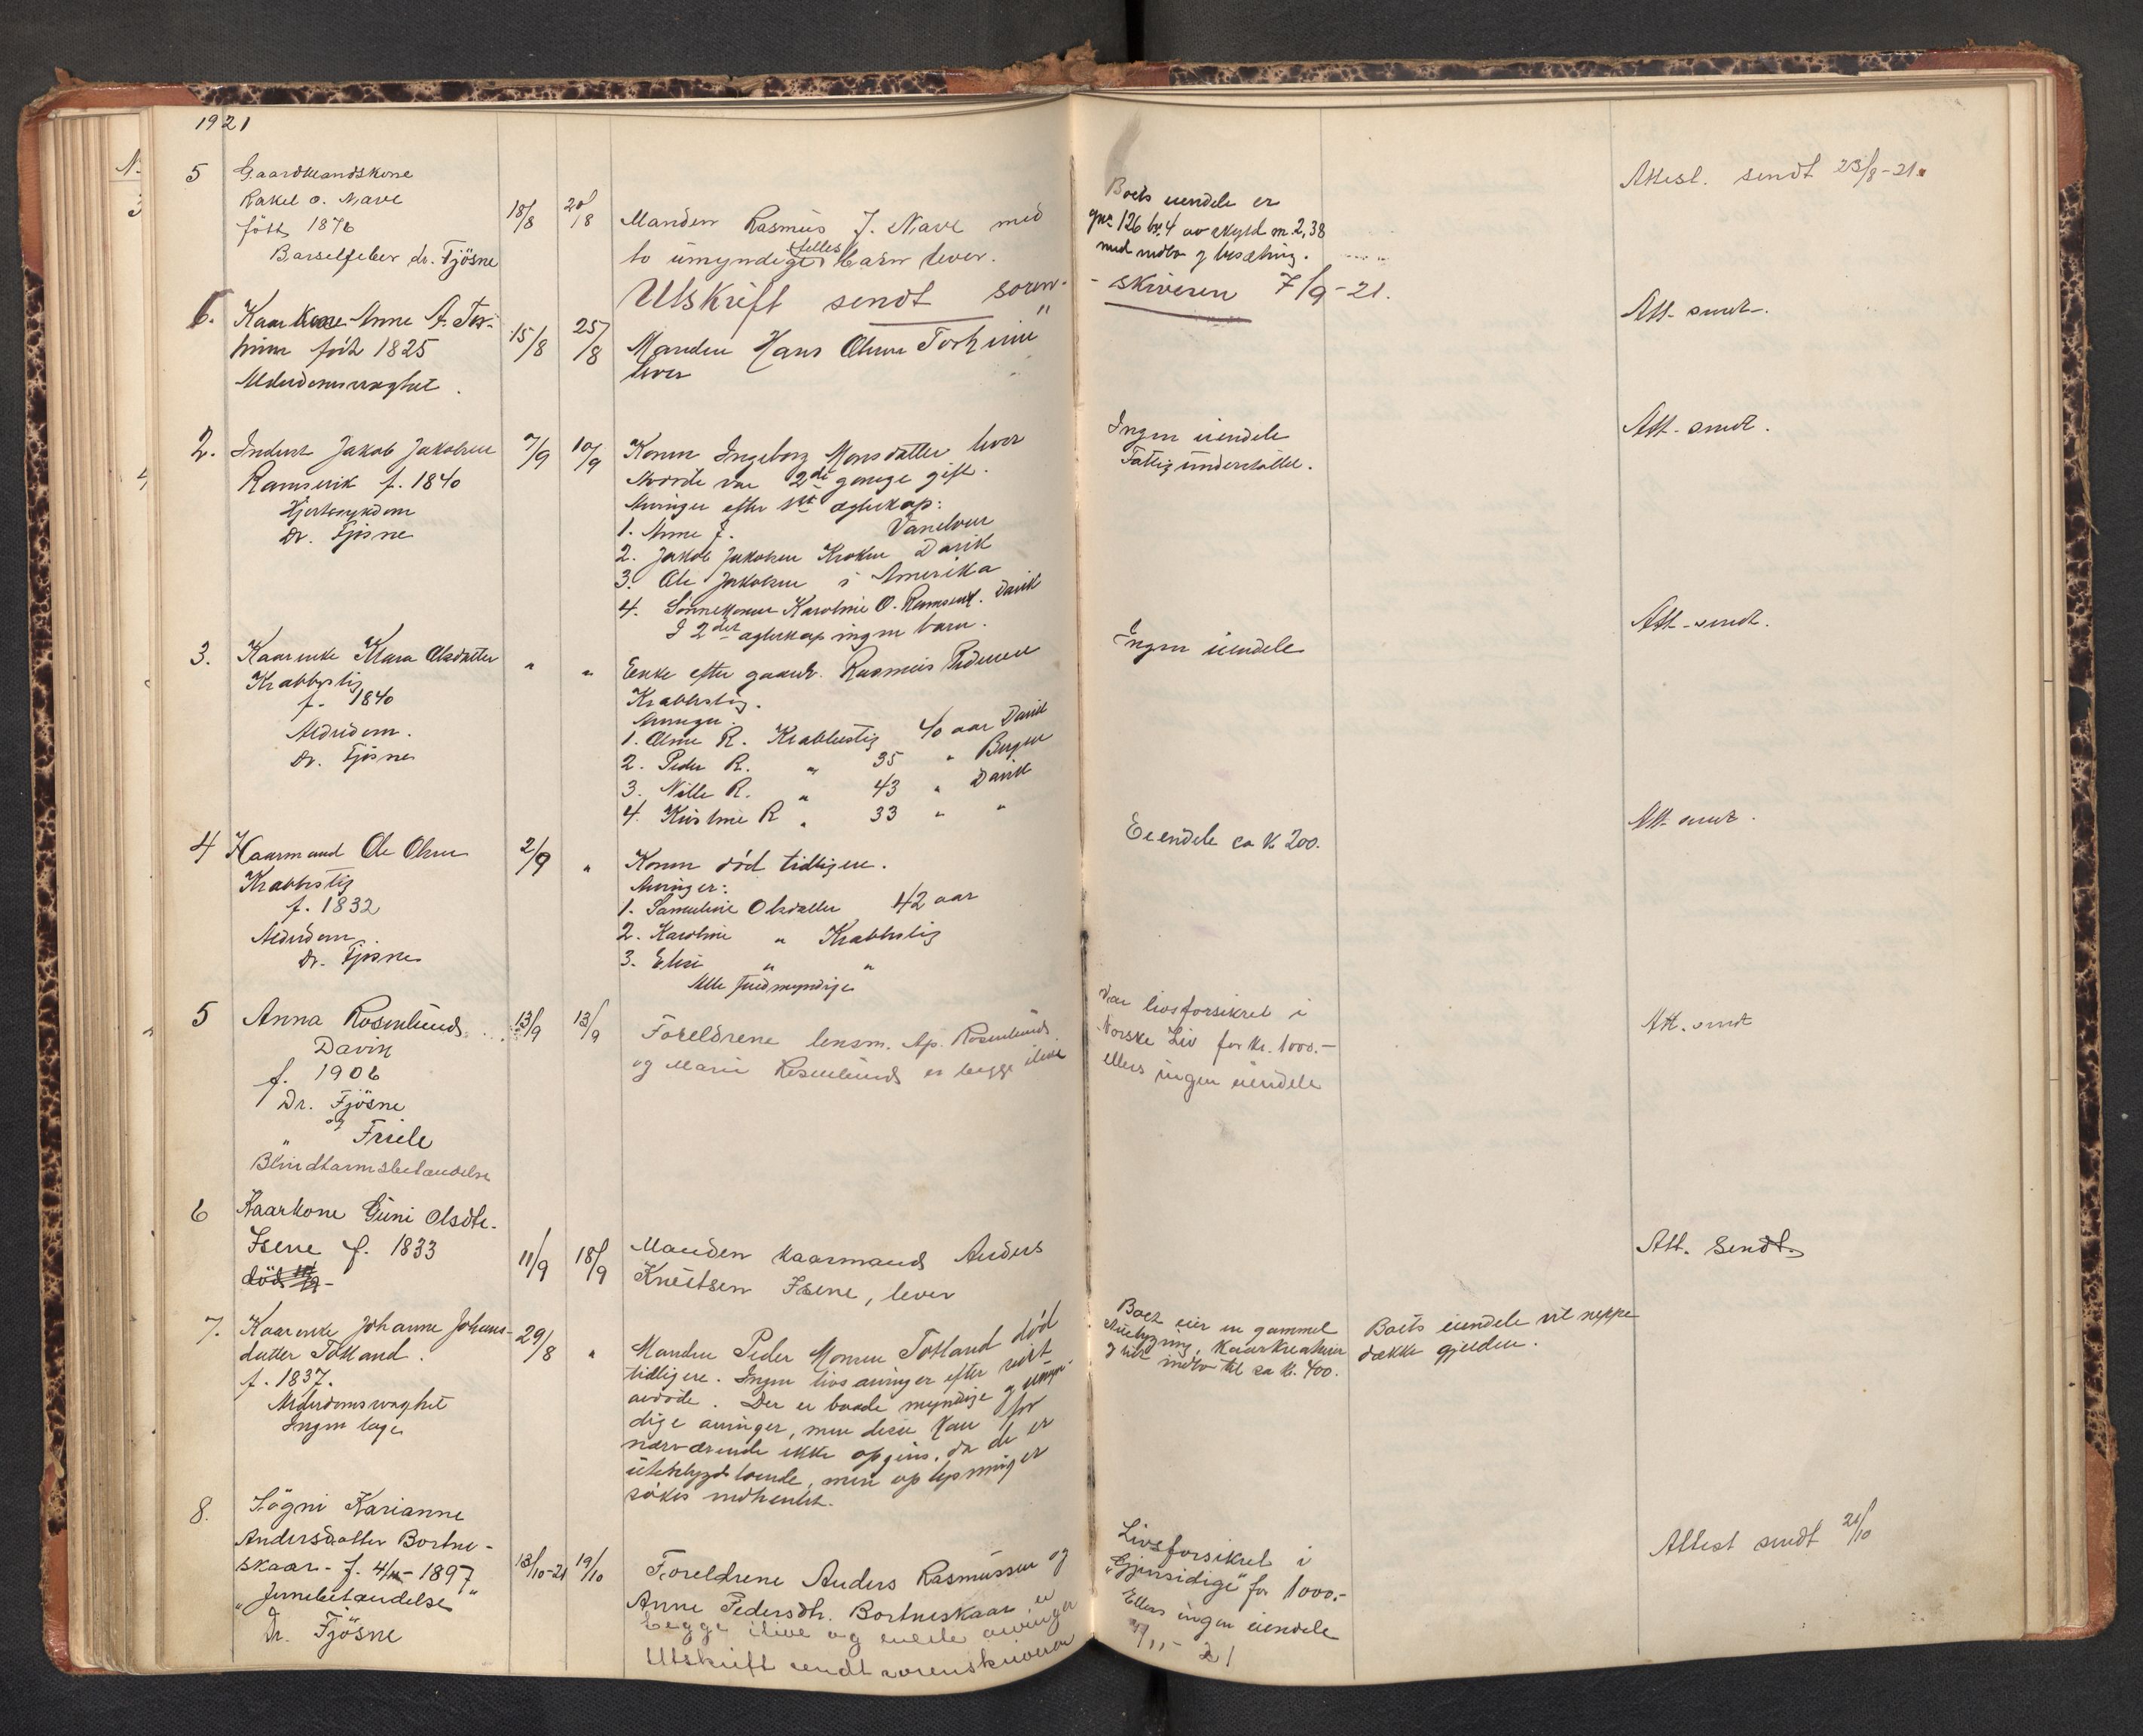 1921
5 Gaardmandskone
Rakel O. Nave
født 1876
Barselfeber dr. Fjösne
18/8 20/8
Manden Rasmus J. Nave med
to umyndige felles barn lever.
Utskrift sendt soren-
Boets eiendele er
gnr 126 br. 4 av skyld m. 2,38
med indbo og besætning.
- skriveren 7/9-21.
Attest. sendt 23/8-21.
6. Kaarkone Anne A. Tor-
heim født 1825
Alderdomssvaghet.
15/8 25/8
Manden Hans Olsen Torheim
lever
Att. sendt.
2. Inderst Jakob Jakobsen
Ramsvik f. 1840
Hjertesykdom
Dr. Fjøsne
7/9 10/9
Konen Ingeborg Monsdatter lever
Avdøde var 2de gange gift.
Arvinger efter 1ste ægteskap:
1. Anne J. Vanelven
2. Jakob Jakobsen Kroken Davik
3. Ole Jakobsen i Amerika
4. Sønnekonen Karoline O. Ramsvik. Davik
I 2det ægteskap ingen barn.
Ingen eiendele
Fattigunderstøttet.
Att. sendt.
3. Kaarenke Klara Olsdatter
Krabbestig
f. 1840
Alderdom.
Dr. Fjøsne
" "
Enke efter gaardbr. Rasmus Pedersen
Krabbestig.
Arvinger.
1. Oline R. Krabbestig 40 aar Davik
2. Peder R. " 35 " Bergen
3. Nille R. " 43 " Davik
4. Kristine R " 33 " "
Ingen eiendele
Att. sendt.
4 Kaarmand Ole Olsen
Krabbestig
f. 1832
Alderdom.
Dr. Fjøsne
2/9 "
Konen død tidligere.
Arvinger:
1. Samueline Olsdatter 42 aar
2. Karoline " Krabbestig
3. Elisi " "
Alle fuldmyndige
Eiendele ca kr 200.
Att. sendt.
5 Anna Rosenlund
Davik
f. 1906
Dr. Fjösne
og
" Friele
Blindtarmsbetændelse
13/9 13/9
Foreldrene lensm. Ap. Rosenlund
og Marie Rosenlund er begge ilive
Var livsforsikret i
Norske Liv for kr. 1000.-
ellers ingen eiendele
Att. sendt
6 Kaarkone Guni Olsdtr.
Isene f. 1833
död
11/9 18/9
Manden kaarmand Anders
Knutsen Isene, lever
Att. Sendt
7. Kaarenke Johanne Johans-
datter Totland.
f. 1837.
Alderdomssvaghet
Ingen læge
29/8 "
Manden Peder Monsen Totland død
tidligere. Ingen livsarvinger efter sidst
avdøde. Der er baade myndige og umyn-
dige arvinger, men disse kan for
nærværende ikke opgives, da de er
utenbygds boende, men oplysninger er
søkes indhentet.
Boet eier en gammel
stuebygning, kaarkreaturer
og litt indbo til ca kr. 400.
Boets eiendele vil neppe
dække gjelden.
8. Sögni Karianne
Andersdatter Bortne-
skaar - f. 4/11- 1897
"Jernebetændelse"
Dr. Fjösne
13/10-21 19/10
Foreldrene Anders Rasmussen og
Anne Pedersdtr. Bortneskaar er
begge ilive og eneste arvinger
Utskrift sendt sorenskriveren
Livsforsikret i
"Gjensidige" for 1000.-
Ellers ingen eiendele
/11- 21
Attest sendt 21/10